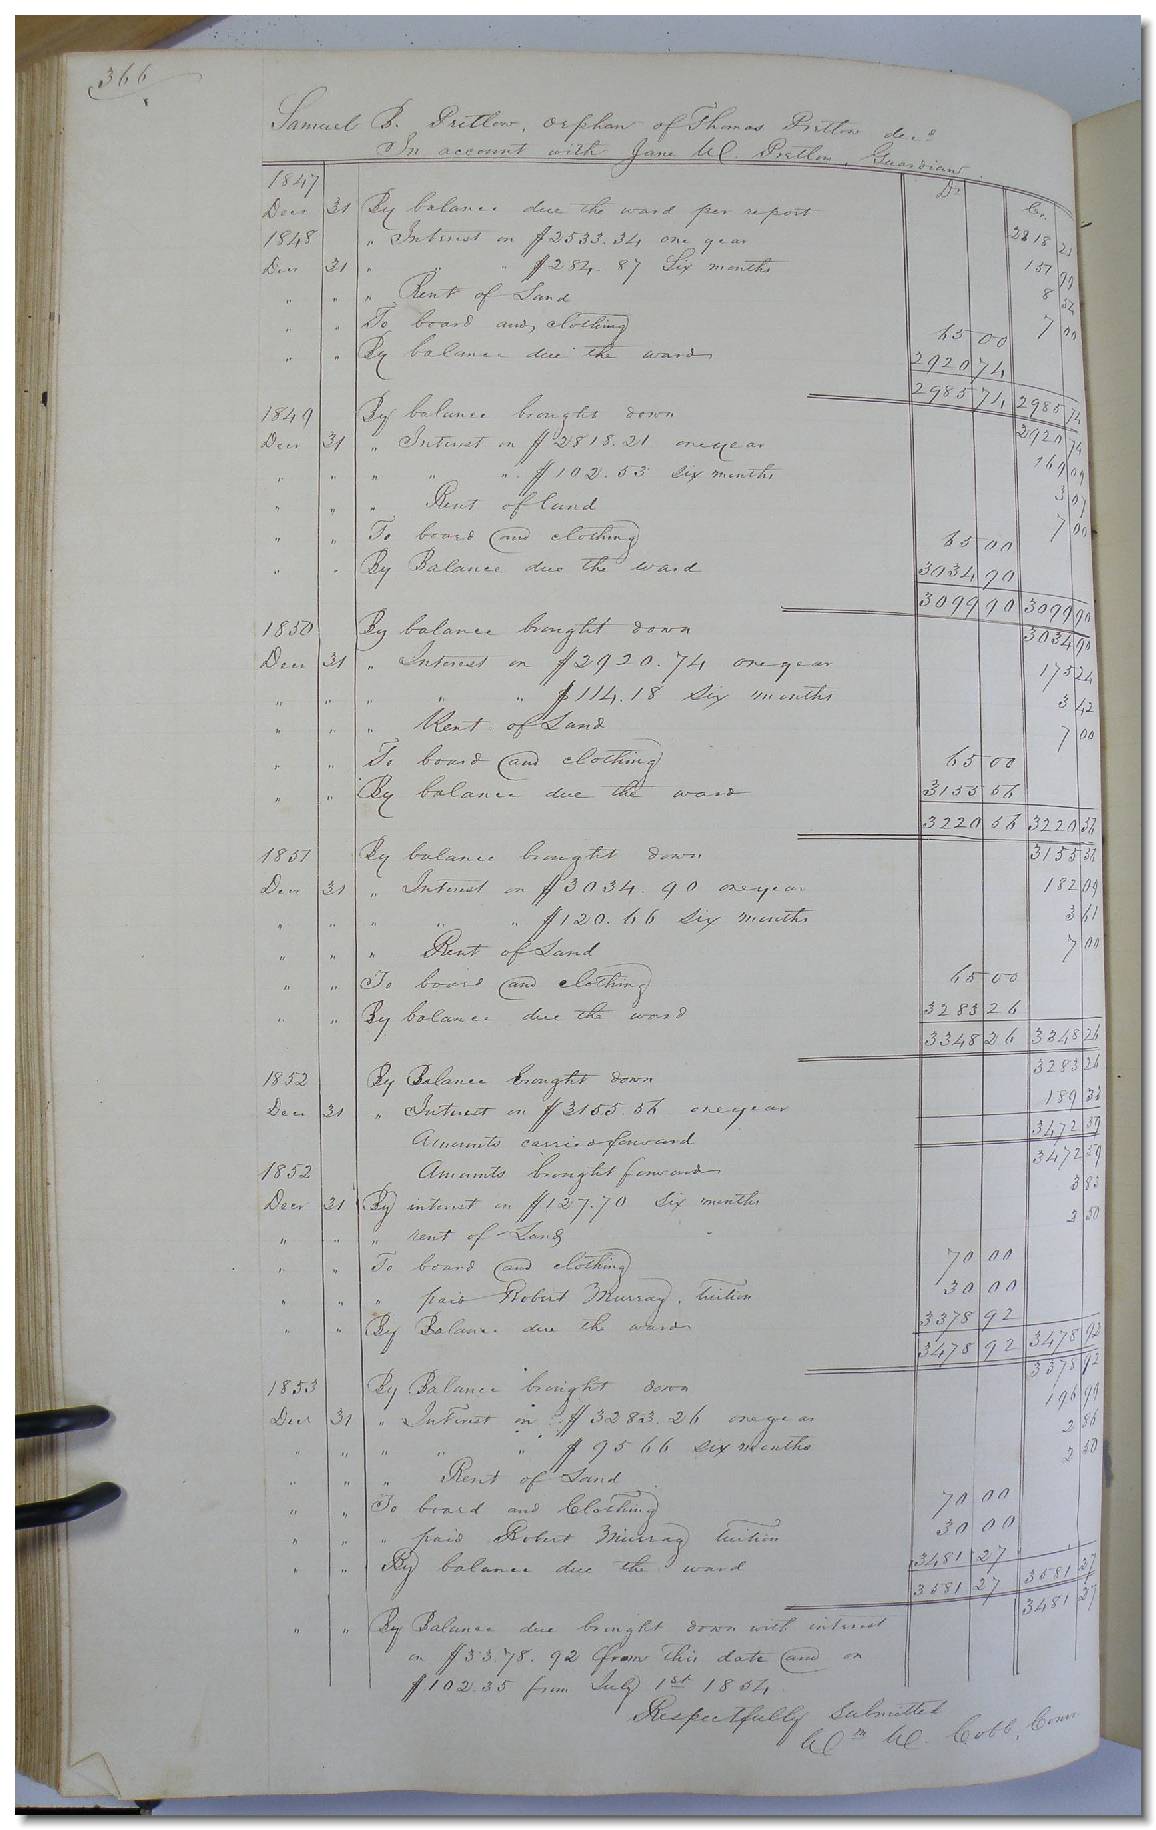 366
Samuel B. Pretlow, orphan of Thomas Pretlow decd
In account with Jane W. Pretlow, Guardian.
1847 Dr Cr.
Decr 31 By balance due the ward per report 2818 21
1848 " Interest on $2533.34 one year 151 99
Decr 31 " " " $284.87 Six months 8 54
" " " Rent of Land 7 00
" " To board and clothing 65 00
" " By balance due the ward 2920 74
2985 74 2985 74
1849 By balance brought down 2920 74
Decr 31 " Interest on $2818.21 one year 169 09
" " " " " $102.53 six months 3 07
" " " Rent of land 7 00
" " To board and clothing 65 00
" " By Balance due the ward 3034 90
3099 90 3099 90
1850 By balance brought down 3034 90
Decr 31 " Interest on $2920.74 one year 175 24
" " " " " $114.18 six months 3 42
" " " Rent of Land 7 00
" " To board and clothing 65 00
" " By balance due the ward 3155 56
3220 56 3220 56
1851 By balance brought down 3155 56
Decr 31 " Interest on $3034.90 one year 182 09
" " " " " $120.66 six months 3 61
" " " Rent of Land 7 00
" " To board and clothing 65 00
" " By balance due the ward 3283 26
3348 26 3348 26
1852 By Balance brought down 3283 26
Decr 31 " Interest on $3155.56 one year 189 33
Amounts carried forward 3472 59
1852 Amounts brought forward 3472 59
Decr 31 By interest on $127.70 six months 3 83
" " " rent of Land 2 50
" " To board and clothing 70 00
" " " paid Robert Murray, tuition 30 00
" " By Balance due the ward 3378 92
3478 92 3478 92
1853 By Balance brought down 3378 92
Decr 31 " Interest on $3283.26 one year 196 99
" " " " " $95 66 six months 2 86
" " " Rent of Land 2 50
" " To board and Clothing 70 00
" " " paid Robert Murray tuition 30 00
" " By balance due the ward 3481 27
3581 27 3581 27
3481 27
" " By Balance due brought down with interest
on $3378.92 from this date and on
$102.35 from July 1st 1854
Respectfully submitted
Wm W. Cobb, Comr